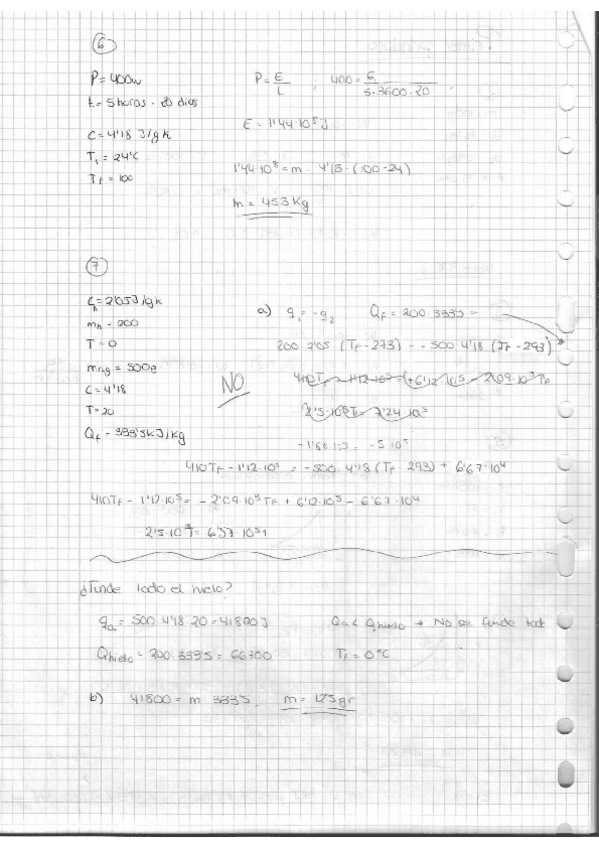 6
P = 400w
t = 5 horas · 20 dias
C = 4'18 J/gk
T₁ = 24°C
Tf = 100
P = E/t ; 400 = E/(5·3600·20)
E = 1'44·10⁸ J
1'44·10⁸ = m · 4'18 · (100-24)
m = 453 Kg
7
Ch = 2'05 J/gk
mh = 200
T = 0
mag = 500g
C = 4'18
T = 20
Qf = 333'5 KJ/Kg
NO
a) q₁ = -q₂ Qf = 200·333'5 =
200 · 2'05 (Tf - 273) = - 500 4'18 (Tf - 293)
410Tf - 1'12·10⁵ = (+6'12·10⁵ - 2'09·10³ Tf
2'5·10³ T = 7'24·10⁵
-1'68·10³ = -5·10⁵
410Tf - 1'12·10⁵ = -500·4'18 (Tf - 293) + 6'67·10⁴
410Tf - 1'12·10⁵ = - 2'09·10³ Tf + 6'12·10⁵ - 6'67·10⁴
¿Funde todo el hielo?
qa = 500·4'18·20 = 41800 J Qa < Qhielo → No se funde tot
Qhielo = 200·333'5 = 66700 Tf = 0°C
b) 41800 = m · 333'5, m = 125gr